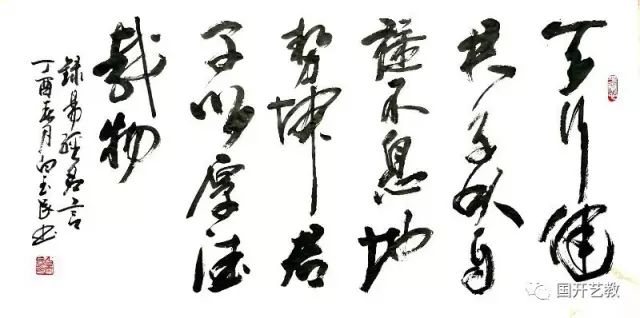 天行健
君子以自
强不息地
势坤君
子以厚德
載物
録易經名言
丁酉春月玉民书
国开艺教